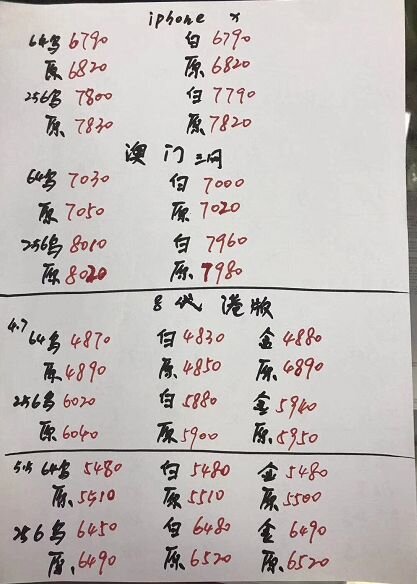 iphone x
64乌 6790 白 6790
原 6820 原 6820
256乌 7800 白 7790
原 7830 原 7820
澳门三网
64乌 7030 白 7000
原 7050 原 7020
256乌 8010 白 7960
原 8020 原 7980
8代港版
4.7
64乌 4870 白 4830 金 4880
原 4890 原 4850 原 4890
256乌 6020 白 5880 金 5940
原 6040 原 5900 原 5950
5.5 64乌 5480 白 5480 金 5480
原 5510 原 5510 原 5500
256乌 6450 白 6480 金 6490
原 6490 原 6520 原 6520